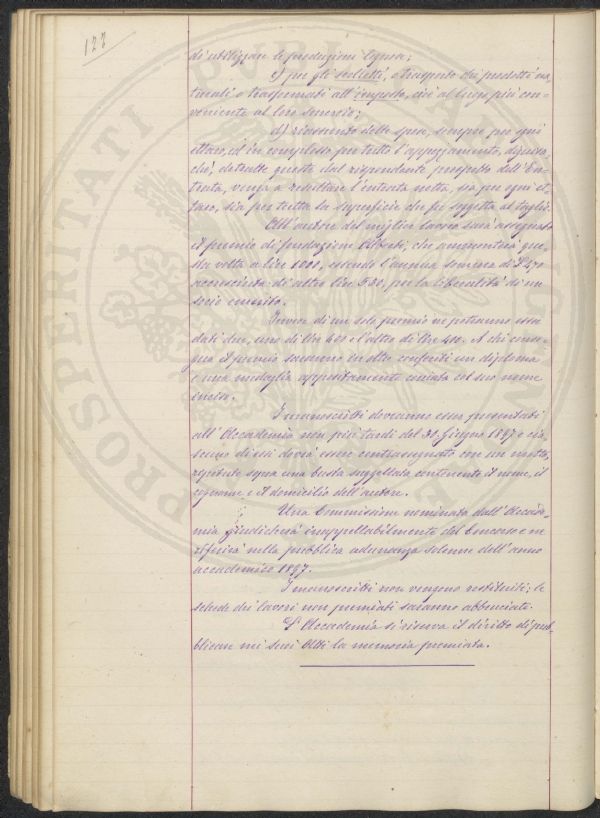 122
di utilizzare le produzioni legnose;
c) per gli assetti, o trasporto dei prodotti na-
turali o trasformati all'emporio, cioè al luogo più con-
veniente al loro smercio;
d) riassunto delle spese, sempre per ogni
ettaro, ed in complesso per tutto l'appezzamento, di guisa
che, detratte queste dal rispondente prospetto dell'En-
trata, venga a risultare l'entrata netta, sia per ogni et-
taro, sia per tutta la superficie che fu soggetta al taglio.
All'autore del miglior lavoro sarà assegnato
il premio di fondazione Alberti, che ammonterà que-
sta volta a lire 1000, essendo l'annua somma di L 470
accresciuta di altre lire 530, per la liberalità di un
socio emerito.
Invece di un solo premio ne potranno esser
dati due, uno di lire 600 e l'altro di lire 400. A chi conse-
gua il premio saranno inoltre conferiti un diploma
e una medaglia appositamente coniata col suo nome
inciso.
I manoscritti dovranno esser presentati
all'Accademia non più tardi del 30 Giugno 1897 e cia-
scuno di essi dovrà essere contrassegnato con un motto,
ripetuto sopra una busta suggellata contenente il nome, il
cognome e il domicilio dell'autore.
Una Commissione nominata dall'Accade-
mia giudicherà inappellabilmente del Concorso e ne
riferirà nella pubblica adunanza solenne dell'anno
accademico 1897.
I manoscritti non vengono restituiti; le
schede dei lavori non premiati saranno abbruciate.
L'Accademia si riserva il diritto di pub-
blicare nei suoi Atti la memoria premiata.
PROSPERITATI PUBLICAE